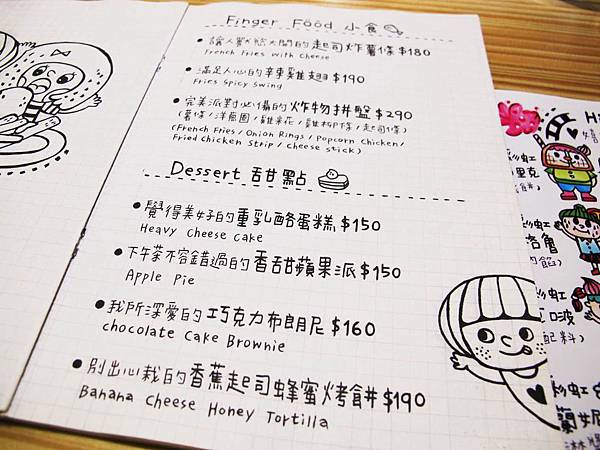 Finger Food 小食
•讓人歡慾大開的起司炸薯條$180
French Fries with Cheese
•滿足人心的辣雞翅$190
Fries Spicy Swing
•完美派對必備的炸物拼盤$290
(薯條/洋蔥圈/雞米花/雞柳條/起司條)
(French Fries/Onion Rings/Popcorn Chicken/
Fried Chicken Strip/Cheese stick)
Dessert 甜點
•覺得美好的重乳酪蛋糕$150
Heavy Cheese Cake
•下午茶不容錯過的香甜蘋果派$150
Apple Pie
•我所深愛的巧克力布朗尼$160
chocolate Cake Brownie
•別出心栽的香蕉起司蜂蜜烤餅$190
Banana Cheese Honey Tortilla
Ha
彩虹
里克
彩虹
洛魯
彩虹
啵
配料)
彩虹
蘭妮